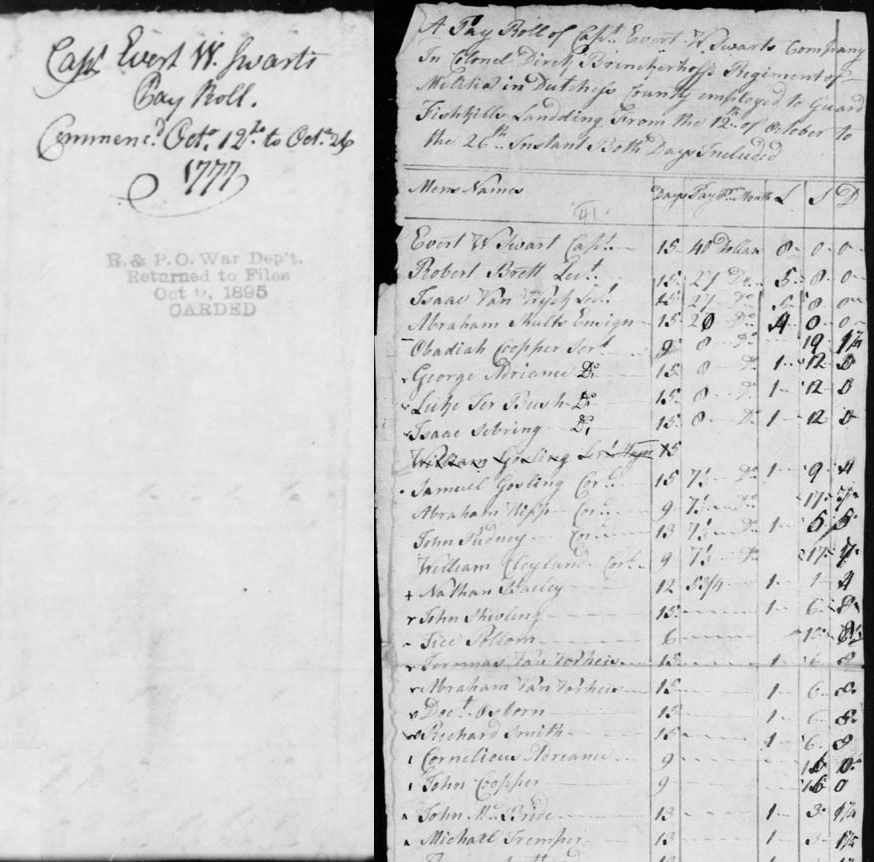 Capt Evert W. Swarts
Pay Roll.
Commencd Octo. 12th to Octo. 26
1777
R. & P.O. War Dep't.
Returned to Files
Oct 1895
CARDED
A Pay Roll of Capt. Evert W. Swarts Company
In Colonel Dirck Brinckerhoffs Regiment of
Militia in Dutchess County employed to Guard
Fishkills Landding From the 12th of October to
the 26th Instant Both Days Included
Mens Names Days Pay Pr. Month L S D
41
Evert W Swart Capt. 15 40 Dollars 8 0 0
Robert Brett Leut. 15 27 Do 5 8 0
Isaac Van Leut. 15 27 Do 5 8 0
Abraham Shults Ensign 15 20 Do 4 0 0
Obadiah Coopper Sert 9 8 Do 19
George Adriance Do 15 8 Do 1 12 0
Luke Ter Bush Do 15 8 Do 1 12 0
Isaac Sebring Do 15 8 Do 1 12 0
William Gosling 15
Samuel Gosling Cor. 15 7⅓ Do 1 9 4
Abraham Cor. 9 7⅓ Do 17 7
John Pudney Cor. 13 7⅓ Do 1 5 5
William Cor. 9 7⅓ Do 17 7
+ Nathan Bailey 12 1 1 4
John 15 1 6 8
6
Van Vorheis 15 1 6 8
Abraham Van Vorheis 15 1 6 8
Doct. Osborn 15 1 6 8
Reechard Smith 15 1 6 8
Cornelious Adreance 9 16 0
John Coopper 9 16 0
John Mc Bride 13 1 3 1¼
Michael Tremper 13 1 3 1¼